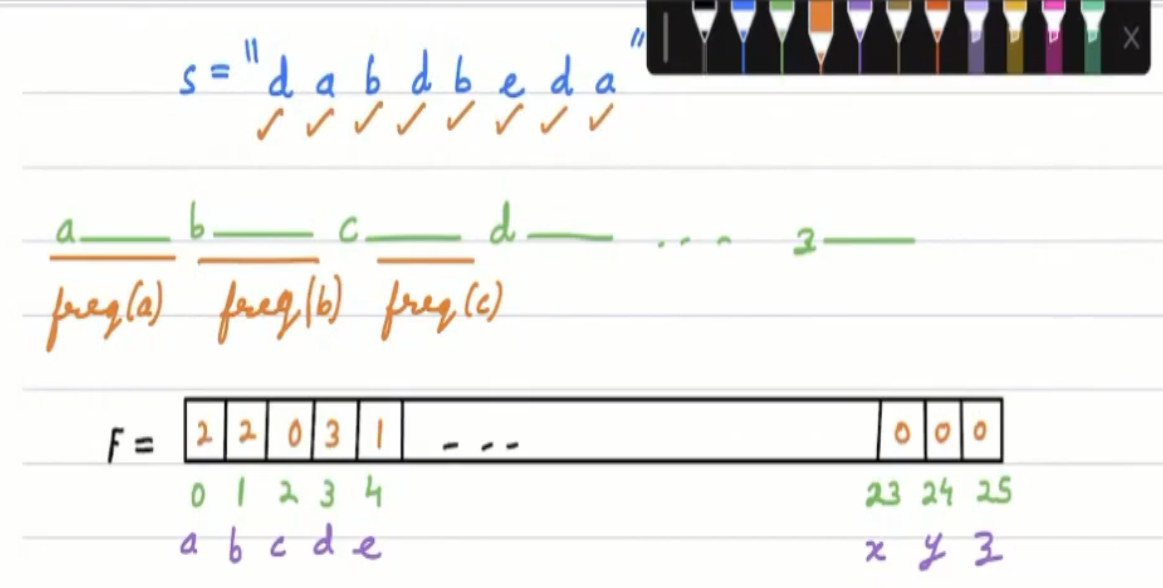 s = "d a b d b e d a"
a b c d ... z
freq(a) freq(b) freq(c)
F = 2 2 0 3 1 --- 0 0 0
0 1 2 3 4 23 24 25
a b c d e x y z